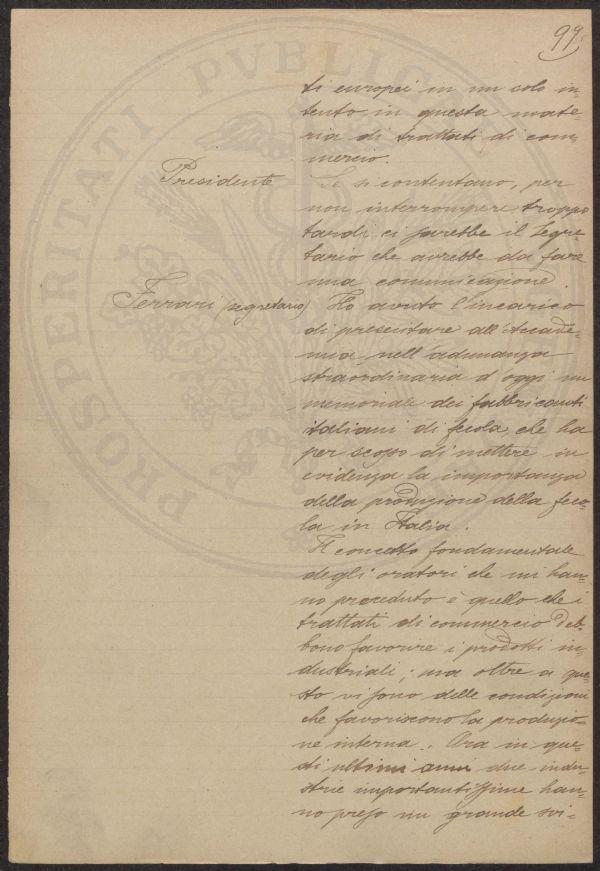 99.
ti europei in un solo in-
tento in questa mate-
ria di trattati di com-
mercio.
Presidente
Se si contentano, per
non interrompere troppo
tardi ci sarebbe il Segre-
tario che avrebbe da fare
una comunicazione.
Ferrari (segretario) Ho avuto l'incarico
di presentare all'Accade-
mia nell'adunanza
straordinaria d'oggi un
memoriale dei fabbricanti
italiani di fecola, che ha
per scopo di mettere in
evidenza la importanza
della produzione della feco-
la in Italia.
Il concetto fondamentale
degli oratori che mi han-
no preceduto è quello che i
trattati di commercio deb-
bono favorire i prodotti in-
dustriali; ma oltre a que-
sto vi sono delle condizioni
che favoriscono la produzio-
ne interna. Ora in que-
sti ultimi anni due indu-
strie importantissime han-
no preso un grande svi-
PROSPERITATI PVBLICAE